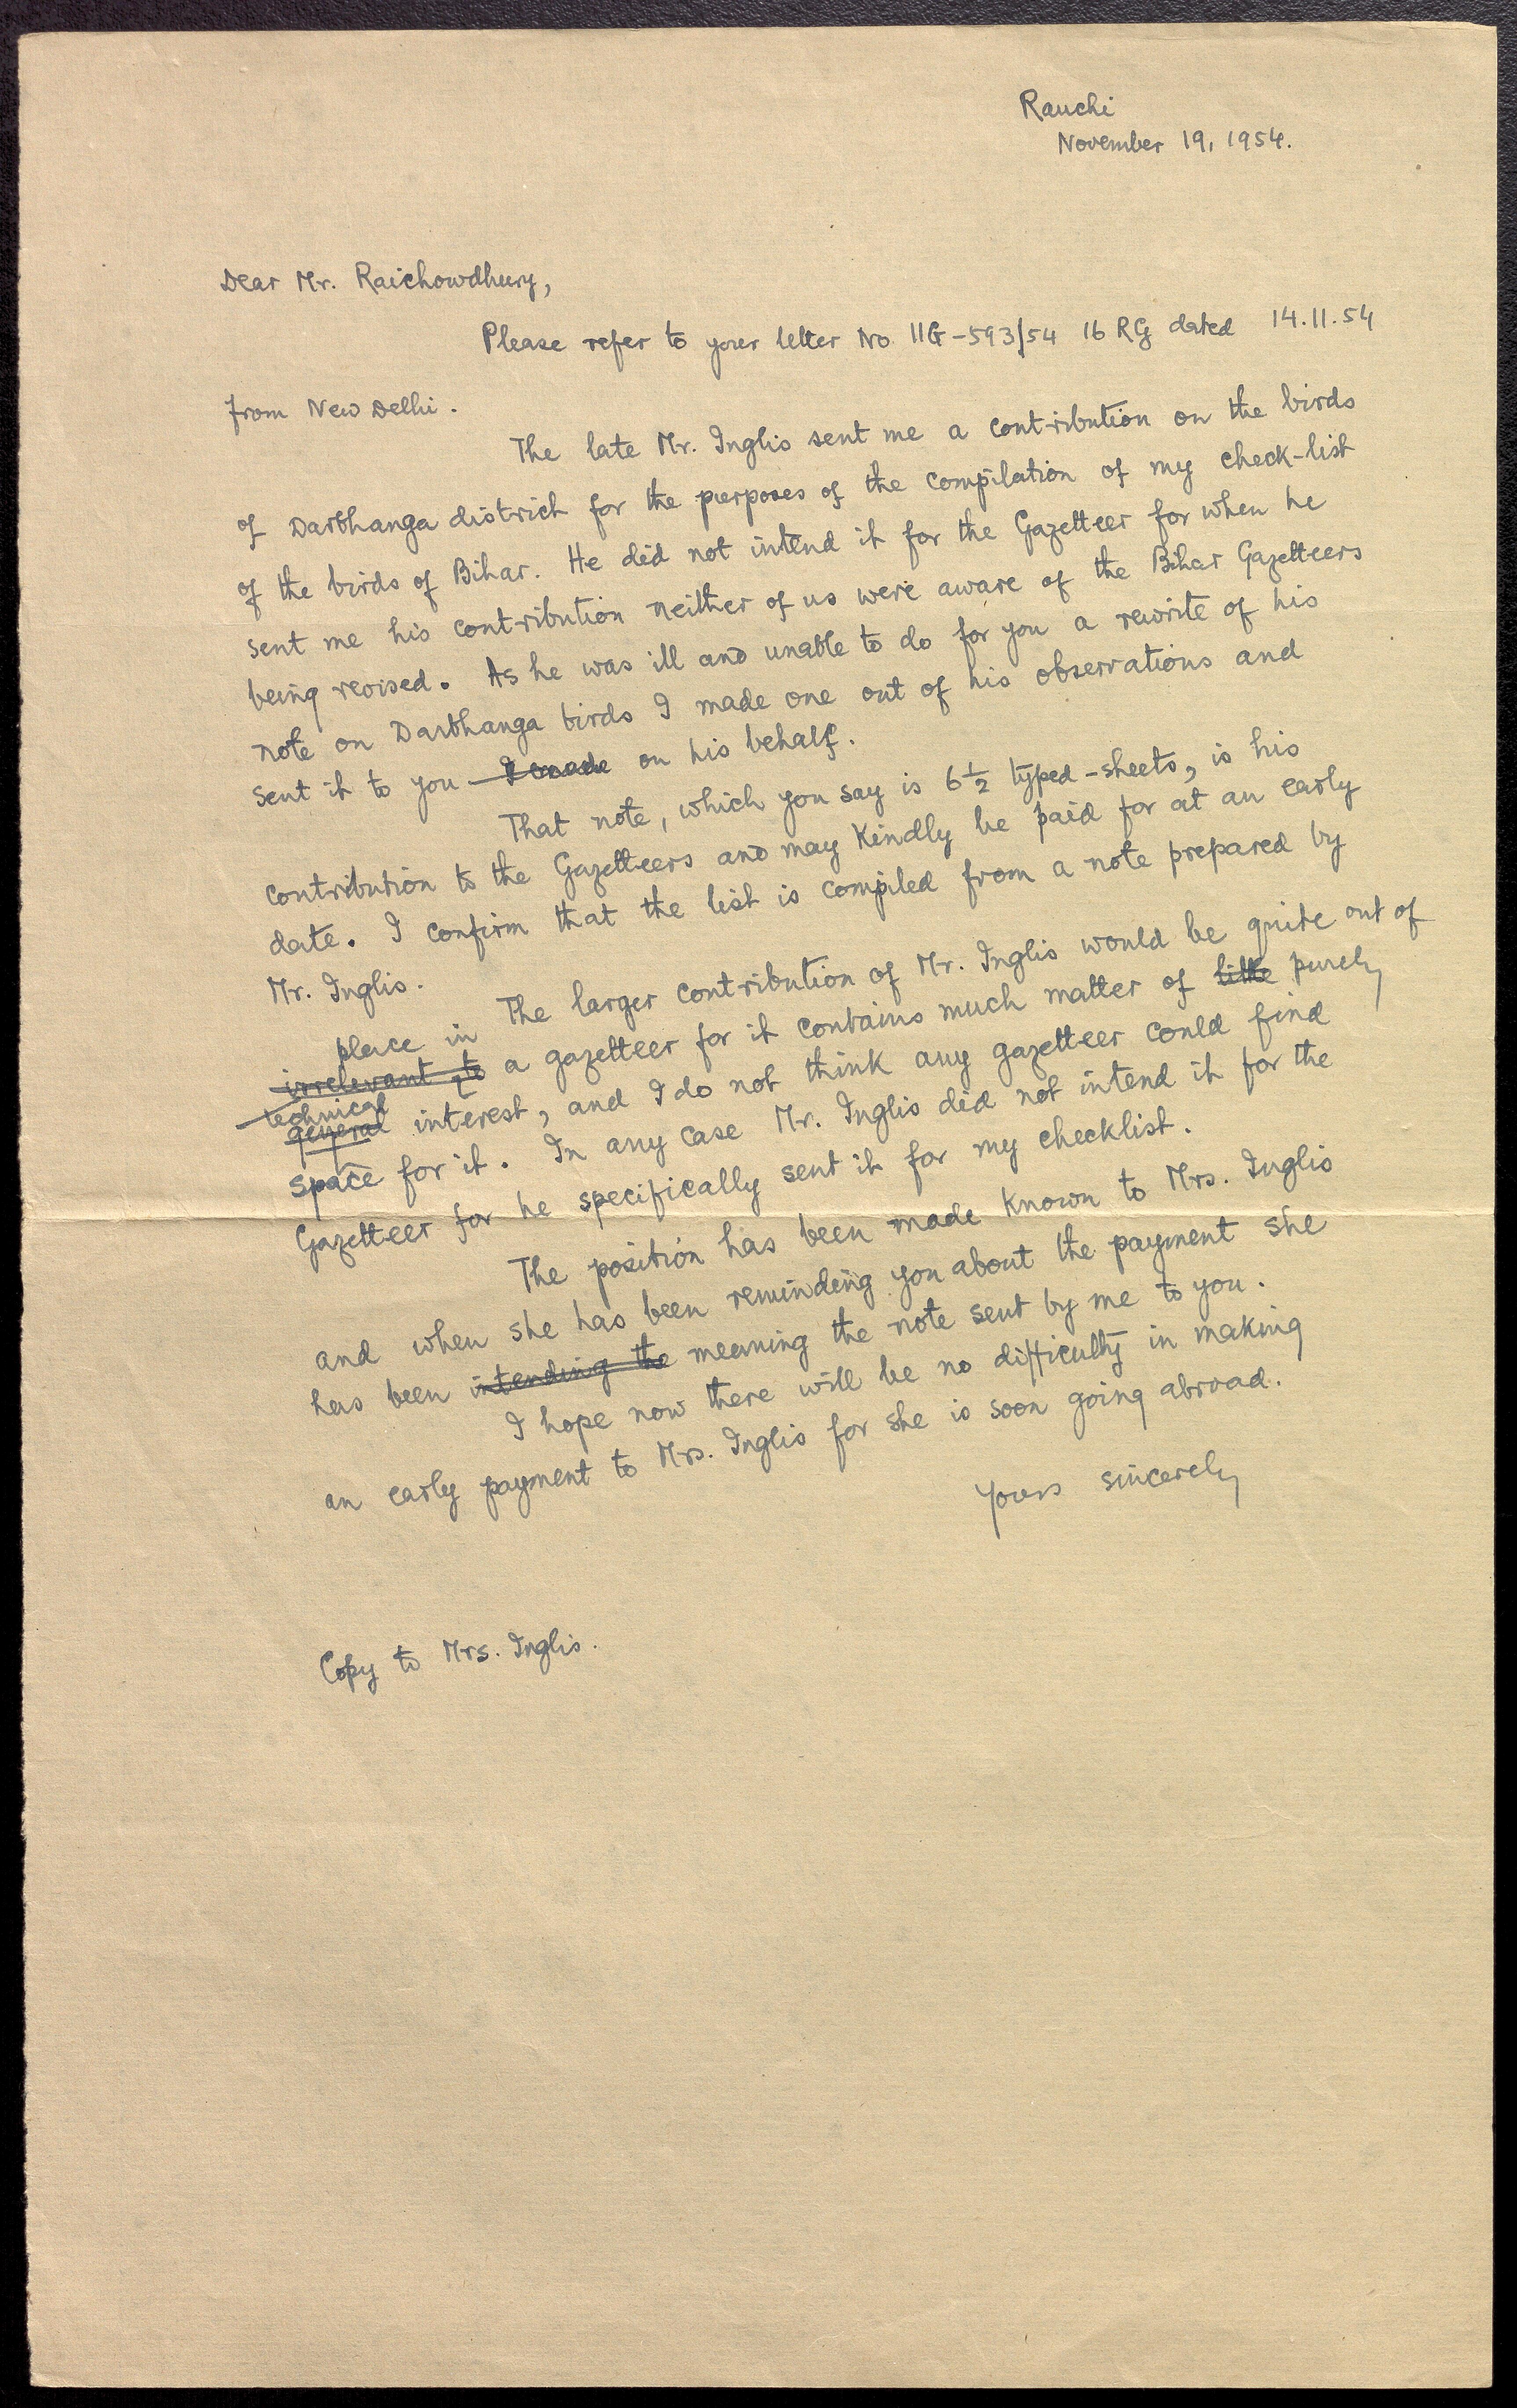 Ranchi
November 19, 1954.
Dear Mr. Raichowdhury,
Please refer to your letter No. IIG-593/54 16 RG dated 14.11.54
from New Delhi.
The late Mr. Inglis sent me a contribution on the birds
of Darbhanga district for the purposes of the compilation of my check-list
of the birds of Bihar. He did not intend it for the Gazetteer for when he
sent me his contribution neither of us were aware of the Bihar Gazetteers
being revised. As he was ill and unable to do for you a rewrite of his
note on Darbhanga birds I made one out of his observations and
sent it to you I made on his behalf.
That note, which you say is 6½ typed-sheets, is his
contribution to the Gazetteers and may kindly be paid for at an early
date. I confirm that the list is compiled from a note prepared by
Mr. Inglis.
The larger contribution of Mr. Inglis would be quite out of
place in
irrelevant to a gazetteer for it contains much matter of little purely
technical
general interest, and I do not think any gazetteer could find
space for it. In any case Mr. Inglis did not intend it for the
Gazetteer for he specifically sent it for my checklist.
The position has been made known to Mrs. Inglis
and when she has been reminding you about the payment she
has been intending the meaning the note sent by me to you.
I hope now there will be no difficulty in making
an early payment to Mrs. Inglis for she is soon going abroad.
Yours sincerely
Copy to Mrs. Inglis.